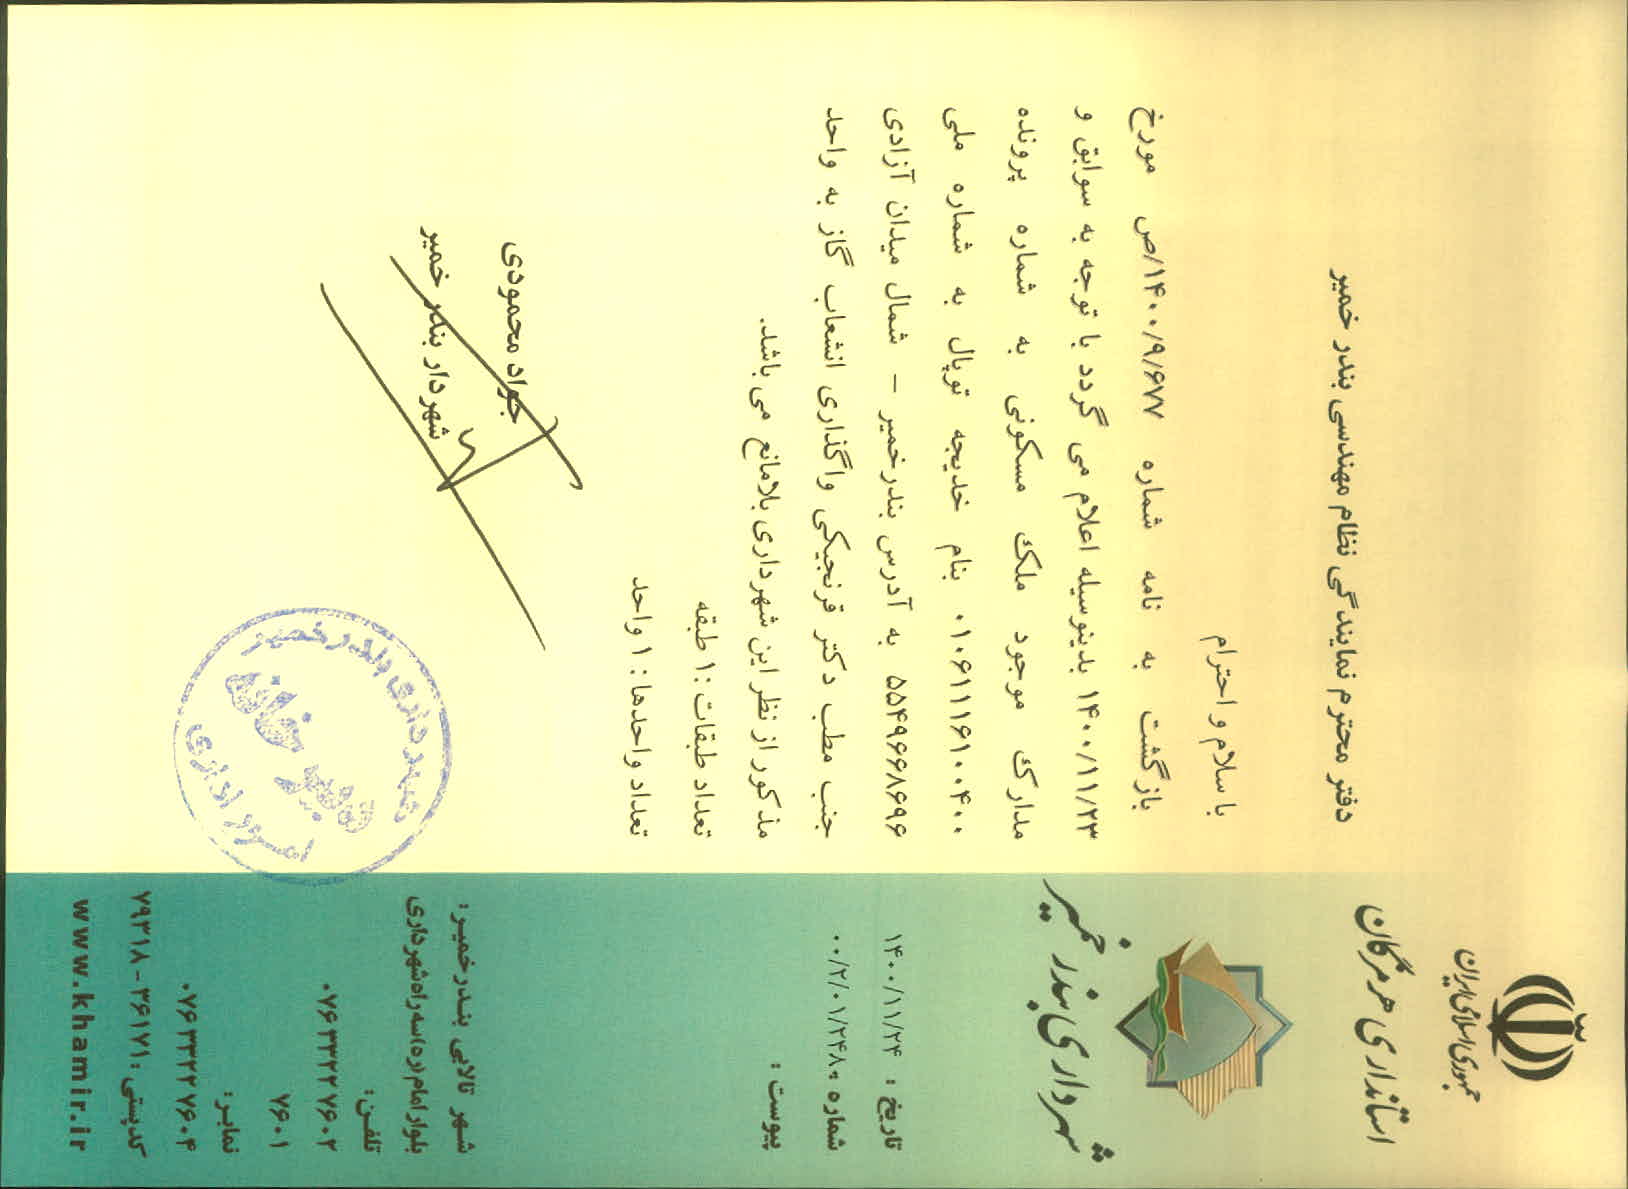 جمهوری اسلامی ایران
استانداری هرمزگان
شهرداری بندر خمیر
تاریخ : ۱۴۰۰/۱۱/۲۴
شماره : ۰۰/۲/۰۱/۲۴۸۰
پیوست :
دفتر محترم نمایندگی نظام مهندسی بندر خمیر
با سلام و احترام
بازگشت به نامه شماره ۱۴۰۰/۹/۶۷۷/ص مورخ
۱۴۰۰/۱۱/۲۳ بدینوسیله اعلام می گردد با توجه به سوابق و
مدارک موجود ملک مسکونی به شماره پرونده
۰۱۰۶۱۱۱۶۱۰۰۴۰۰ بنام خدیجه توپال به شماره ملی
۵۵۴۹۶۶۸۶۹۶ به آدرس بندرخمیر – شمال میدان آزادی
جنب مطب دکتر قرنجیکی واگذاری انشعاب گاز به واحد
مذکور از نظر این شهرداری بلامانع می باشد.
تعداد طبقات : ۱ طبقه
تعداد واحدها : ۱ واحد
جواد محمودی
شهردار بندر خمیر
شهرداری بندر خمیر
دبیرخانه
امور اداری
شهر تالابی بندرخمیر :
بلوار امام (ره) سه راه شهرداری
تلفن:
۰۷۶۳۳۲۲۷۶۰۲
۷۶۰۱
نمابر:
۰۷۶۳۳۲۲۷۶۰۴
کدپستی : ۳۶۱۷۱ - ۷۹۳۱۸
www.khamir.ir